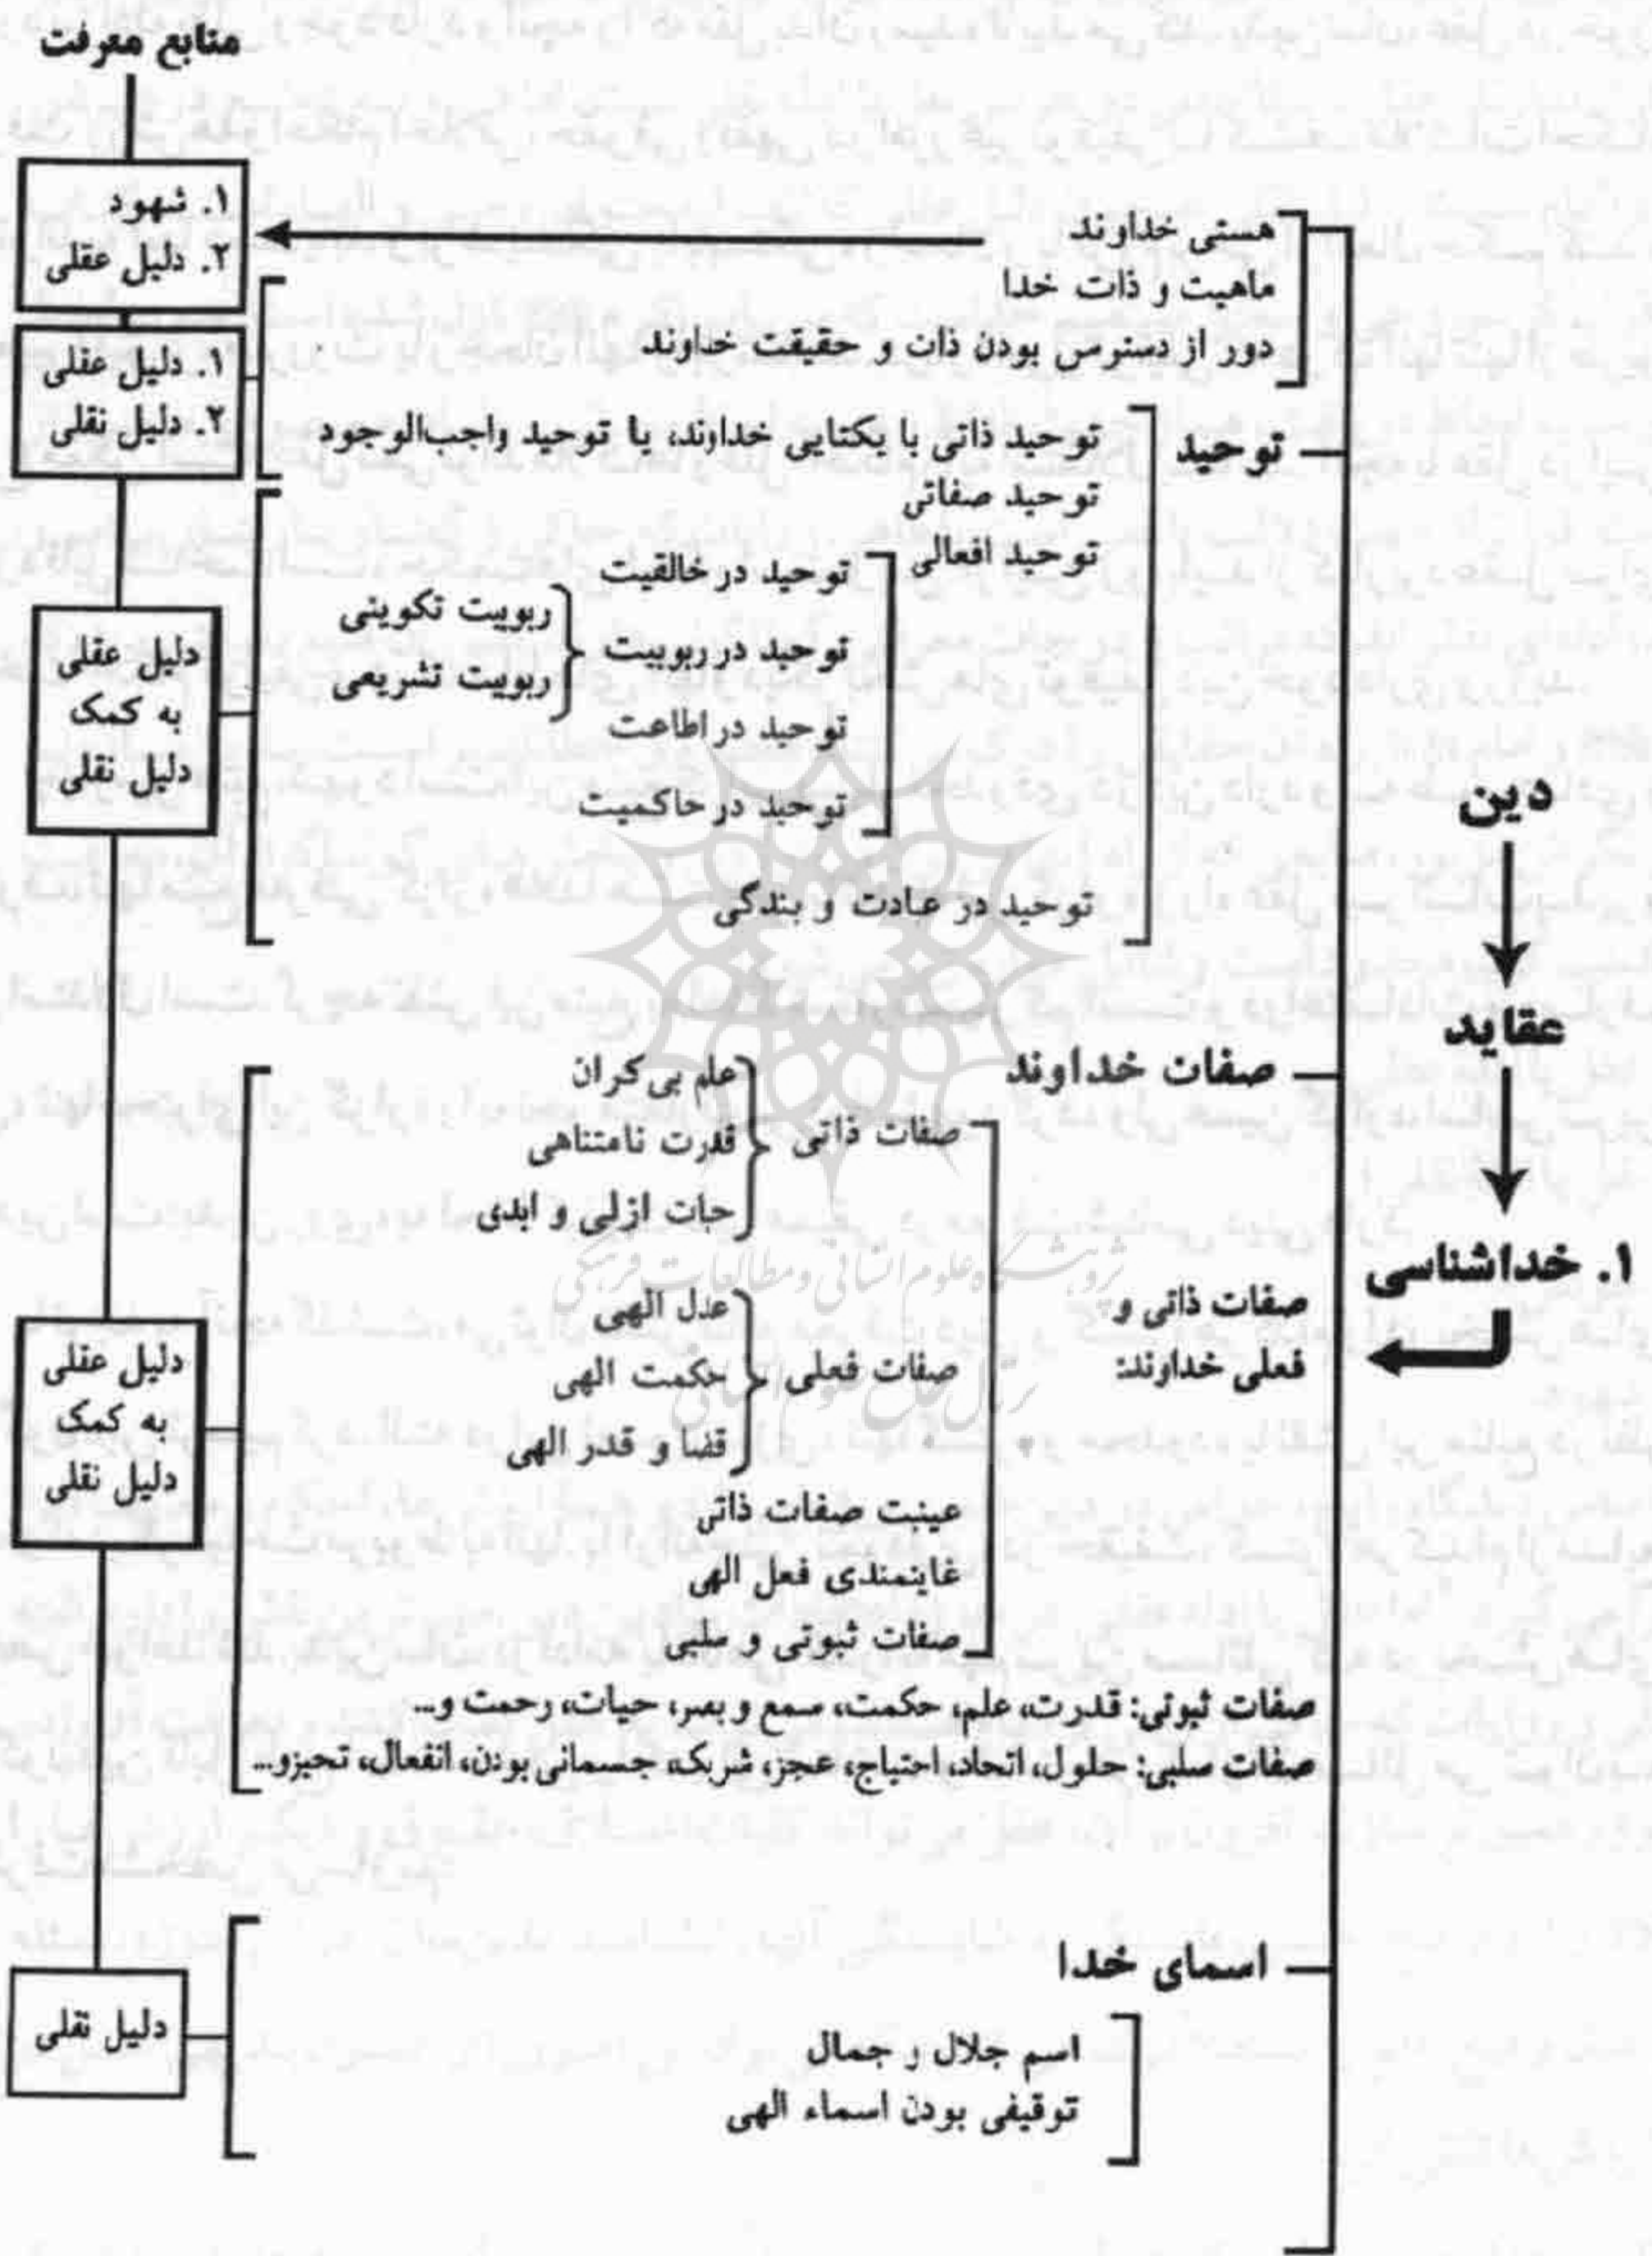 منابع معرفت
۱. شهود
۲. دلیل عقلی
۱. دلیل عقلی
۲. دلیل نقلی
دلیل عقلی
به کمک
دلیل نقلی
دلیل عقلی
به کمک
دلیل نقلی
دلیل نقلی
دین
عقاید
۱. خداشناسی
هستی خداوند
ماهیت و ذات خدا
دور از دسترس بودن ذات و حقیقت خداوند
توحید
توحید ذاتی با یکتایی خداوند، یا توحید واجب‌الوجود
توحید صفاتی
توحید افعالی
توحید در خالقیت
توحید در ربوبیت
ربوبیت تکوینی
ربوبیت تشریعی
توحید در اطاعت
توحید در حاکمیت
توحید در عبادت و بندگی
صفات خداوند
صفات ذاتی و
فعلی خداوند:
صفات ذاتی
علم بی‌کران
قدرت نامتناهی
حیات ازلی و ابدی
صفات فعلی
عدل الهی
حکمت الهی
قضا و قدر الهی
عینیت صفات ذاتی
غایتمندی فعل الهی
صفات ثبوتی و سلبی
صفات ثبوتی: قدرت، علم، حکمت، سمع و بصر، حیات، رحمت و...
صفات سلبی: حلول، اتحاد، احتیاج، عجز، شریک، جسمانی بودن، انفعال، تحیزو...
اسمای خدا
اسم جلال و جمال
توقیفی بودن اسماء الهی
پژوهشگاه علوم انسانی و مطالعات فرهنگی
پرتال جامع علوم انسانی